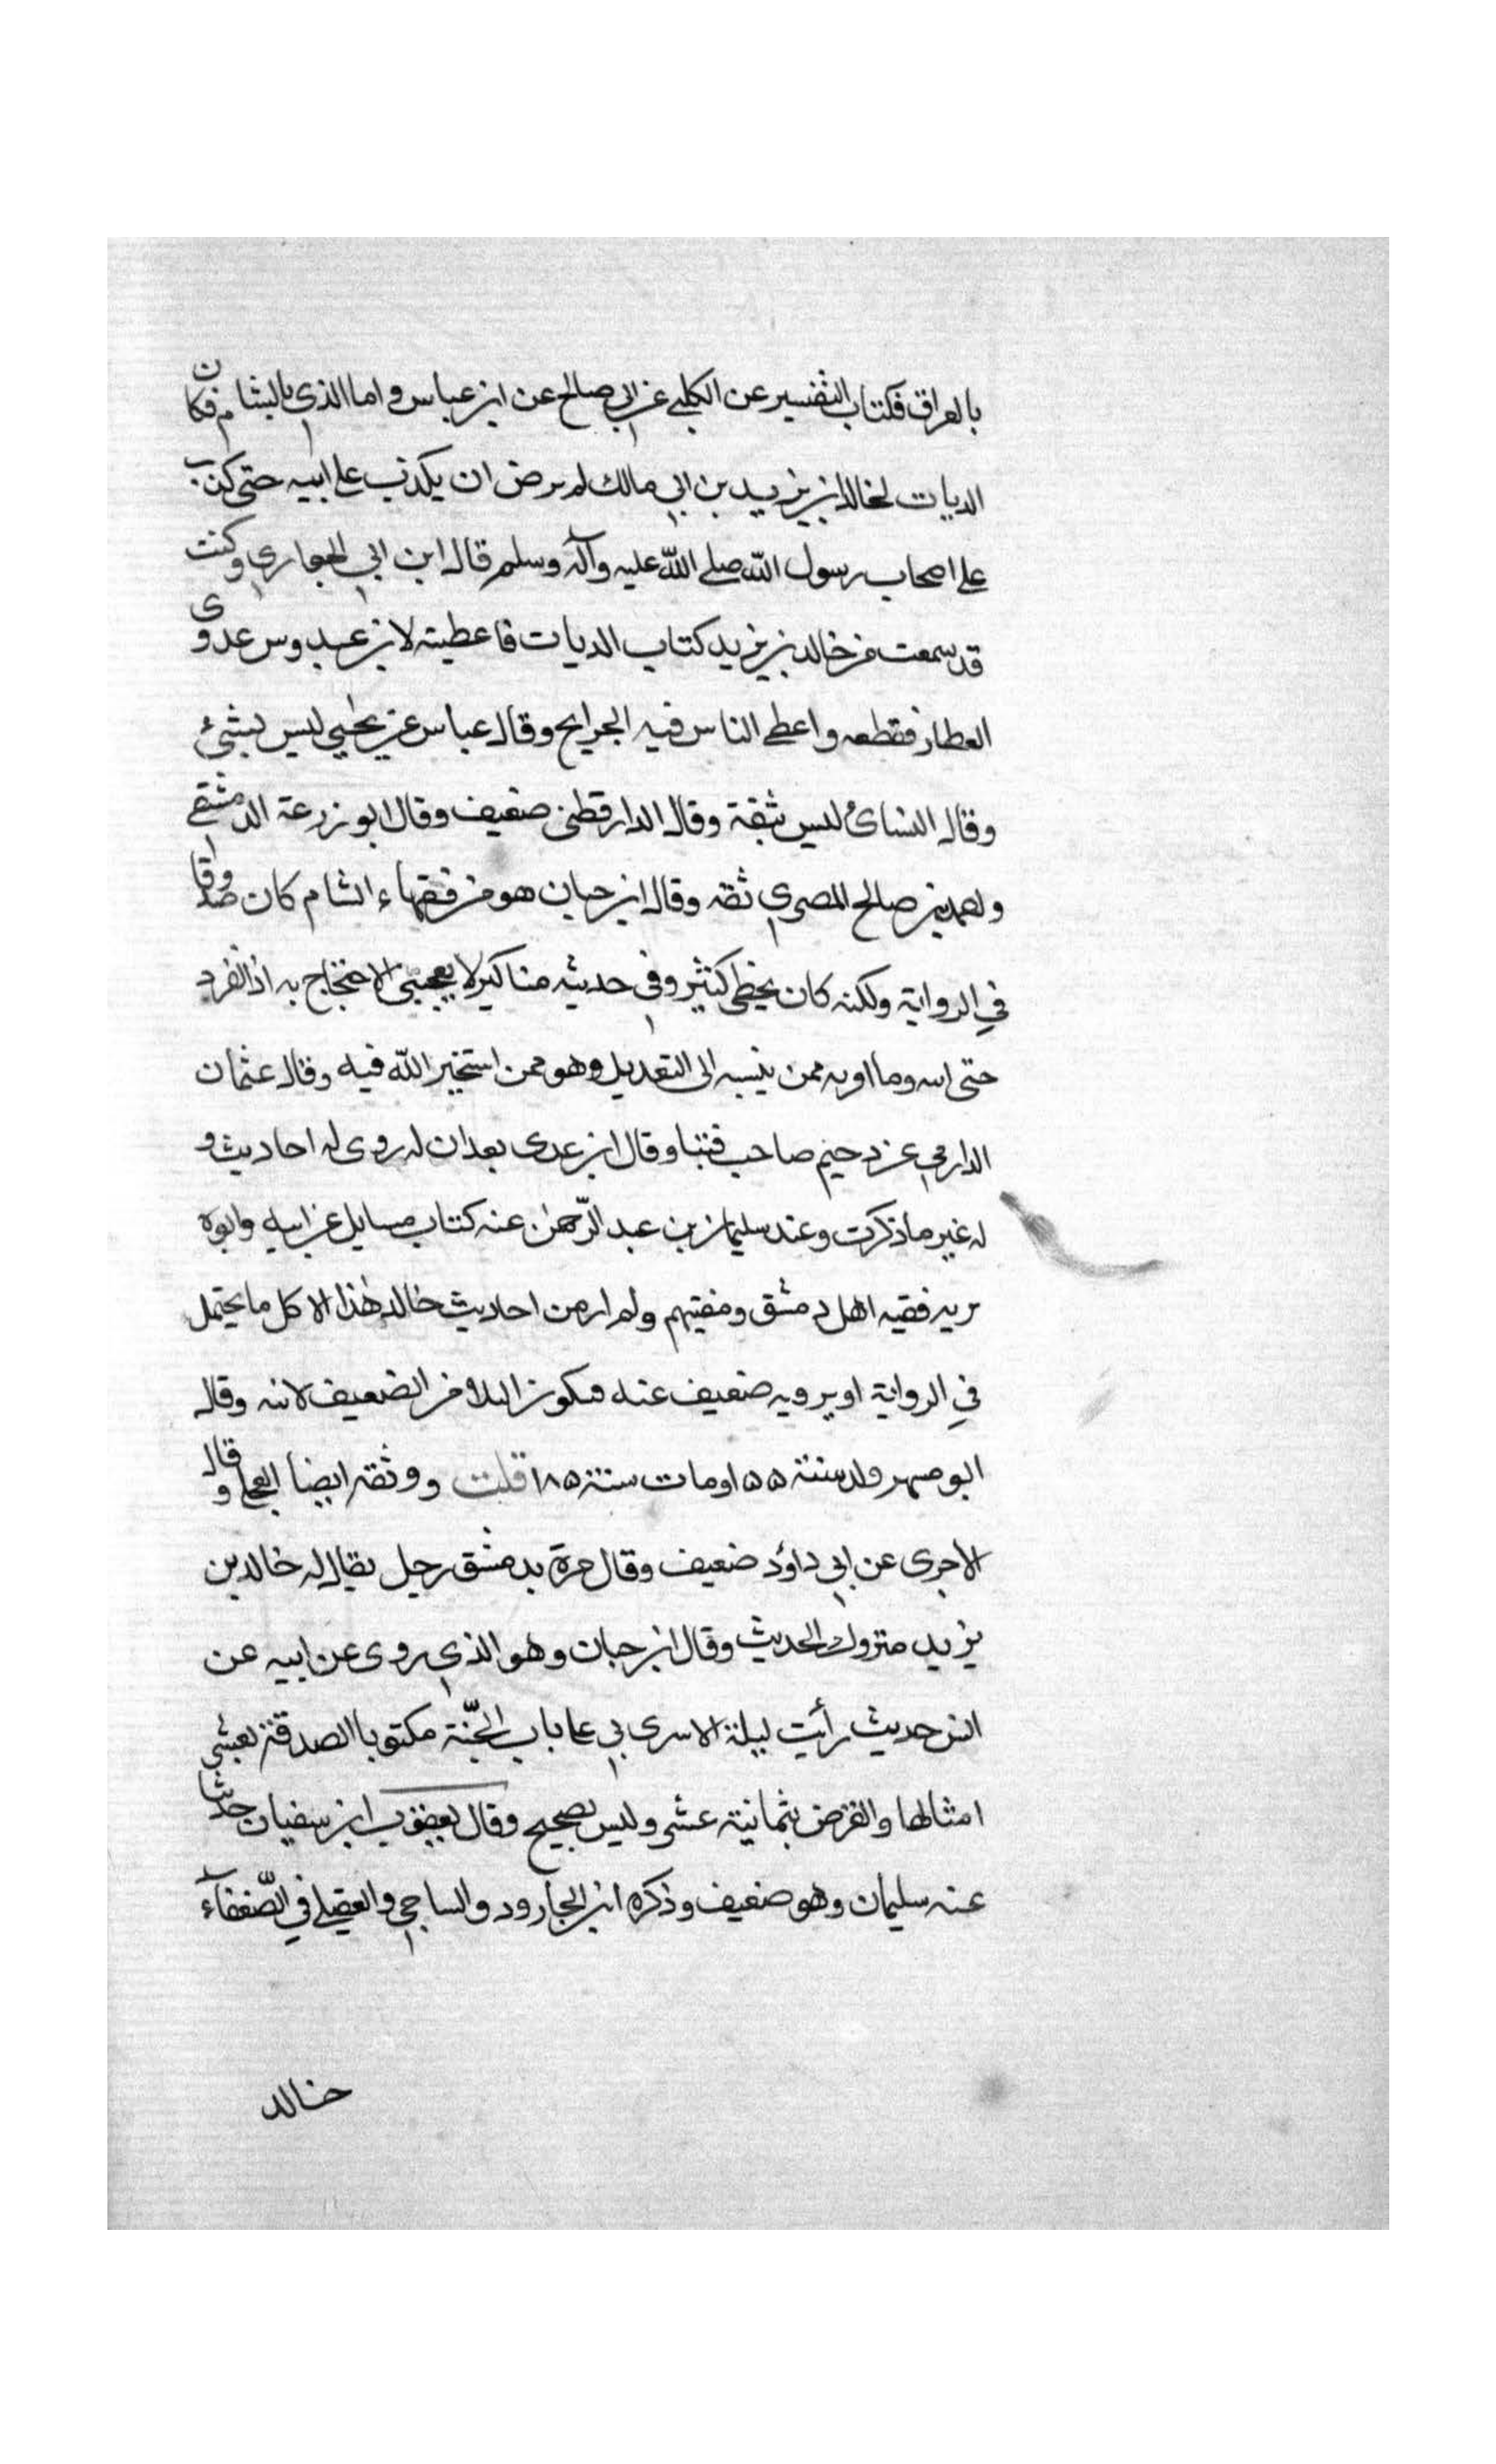 بالعراق فكتاب التفسير عن الكلبي عن ابي صالح عن ابن عباس و اما الذي بالشام فكان
الديات لخالد ابن يزيد بن ابي مالك لم يرض ان يكذب على ابيه حتى كذب
على اصحاب رسول الله صلى الله عليه وآله وسلم قال ابن ابي الحواري وكنت
قد سمعت من خالد بن يزيد كتاب الديات فاعطيته لابن عبدوس عدوى
العطار فقطعه واعطى الناس فيه الجرايح وقال عباس عن يحيى ليس بشيء
وقال النسائي ليس بثقة وقال الدارقطني ضعيف وقال ابو زرعة الدمشقي
واحمد بن صالح المصري ثقه وقال ابن حبان هو من فقهاء الشام كان صدوقا
في الرواية ولكنه كان يخطى كثير وفي حديثه مناكير لا يعجبني الاحتجاج به اذا انفرد
حتى وما ممن ينسبه الى التعديل وهو ممن استخير الله فيه وقال عثمان
الدارمي عن دحيم صاحب فتيا وقال ابن عدى بعد ان له روى له احاديث و
له غير ما ذكرت وعند سليمان بن عبد الرحمن عنه كتاب مسايل عن ابيه وابوه
فقيه اهل دمشق ومفتيهم ولم ار من احاديث خالد هذا الا كل ما يحتمل
في الرواية او يرويه ضعيف عنه فيكون البلاء من الضعيف لانه وقال
ابو مسهر ولد سنة ١٥٥ ومات سنة ١٨٥ قلت ووثقه ايضا العجلي وقال
الاجرى عن ابي داؤد ضعيف وقال مرة بدمشق رجل يقال له خالد بن
يزيد متروك الحديث وقال ابن حبان وهو الذي روى عن ابيه عن
انس حديث رأيت ليلة الاسرى بي على باب الجنّة مكتوبا الصدقة بعشر
امثالها والقرض بثمانية عشر وليس بصحيح وقال يعقوب ابن سفيان حدثنا
عنه سليمان وهو ضعيف وذكره ابن الجارود والساجي والعقيلي في الضّعفاء
خالد